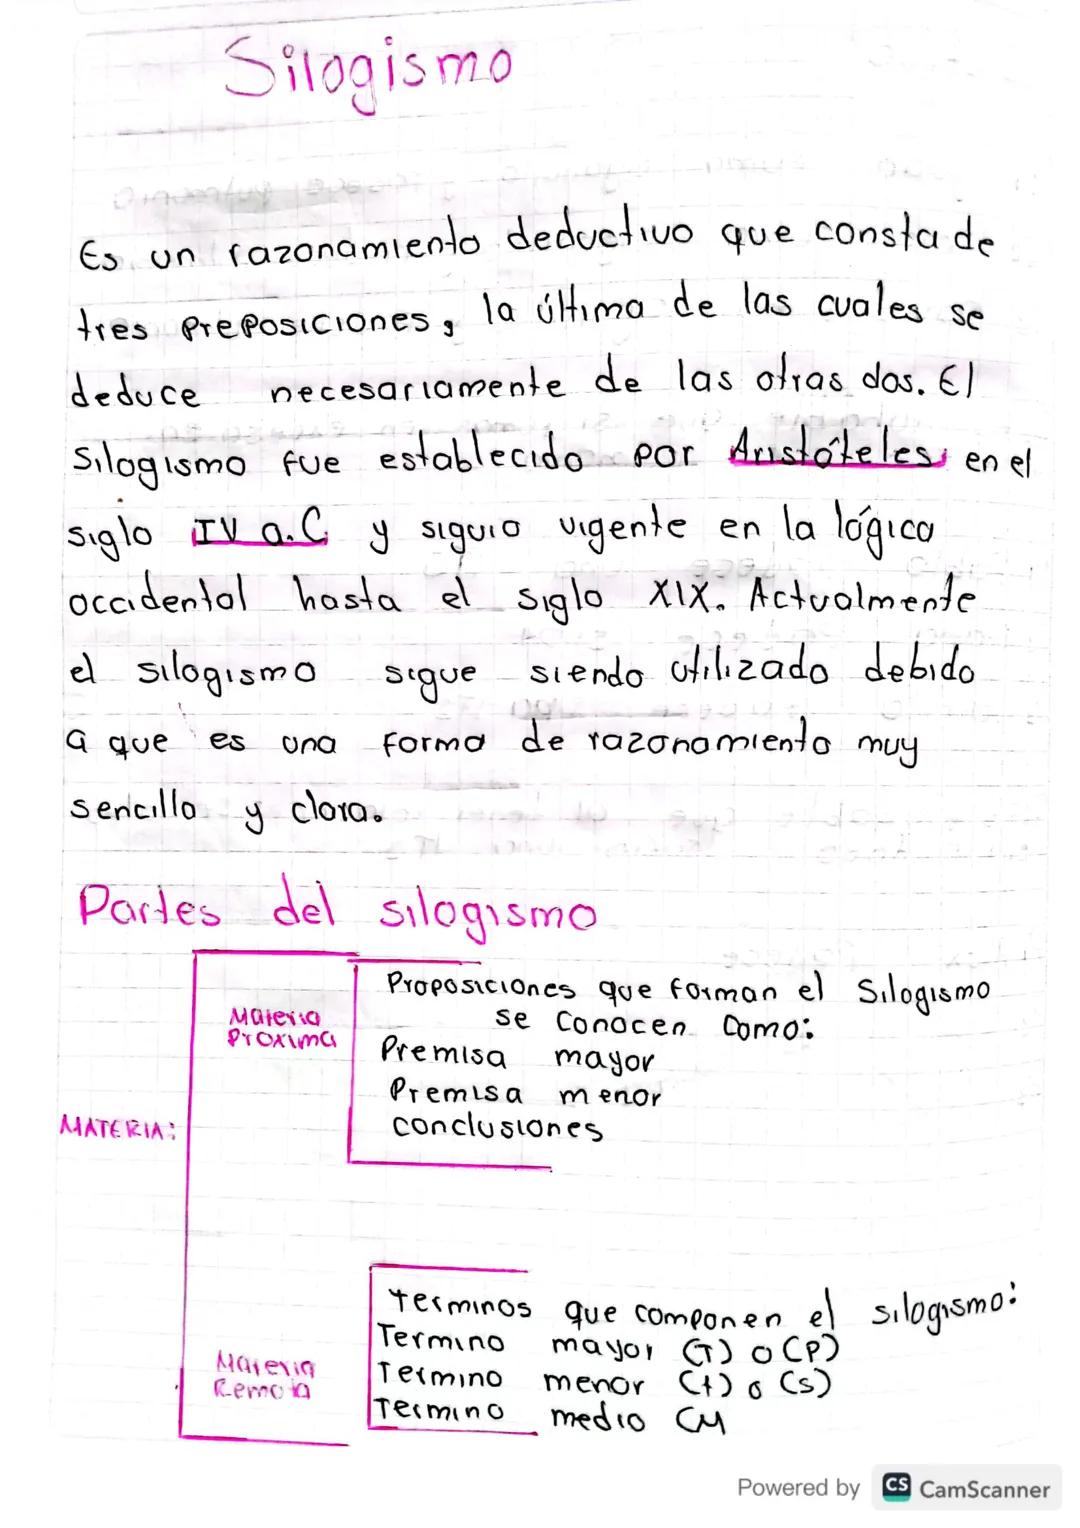 Silogismo
Es un razonamiento deductivo que consta de
tres preposiciones, la última de las cuales se
deduce necesariamente de las otras dos. El
Silogismo fue establecido por Aristóteles en el
siglo IV a.C y siguio vigente en la lógica
occidental hasta el siglo XIX. Actualmente
el silogismo sigue siendo utilizado debido
a que es una forma de razonamiento muy
sencilla y clara.
Partes del silogismo
MATERIA:
Materia
Proxima
Proposiciones que forman el Silogismo
se conocen como:
Premisa mayor
Premisa menor
conclusiones
Materia
Remota
terminos que componen el silogismo:
Termino mayor (T) o (P)
Termino menor (t) o (s)
Termino medio (M
Powered by CS CamScanner